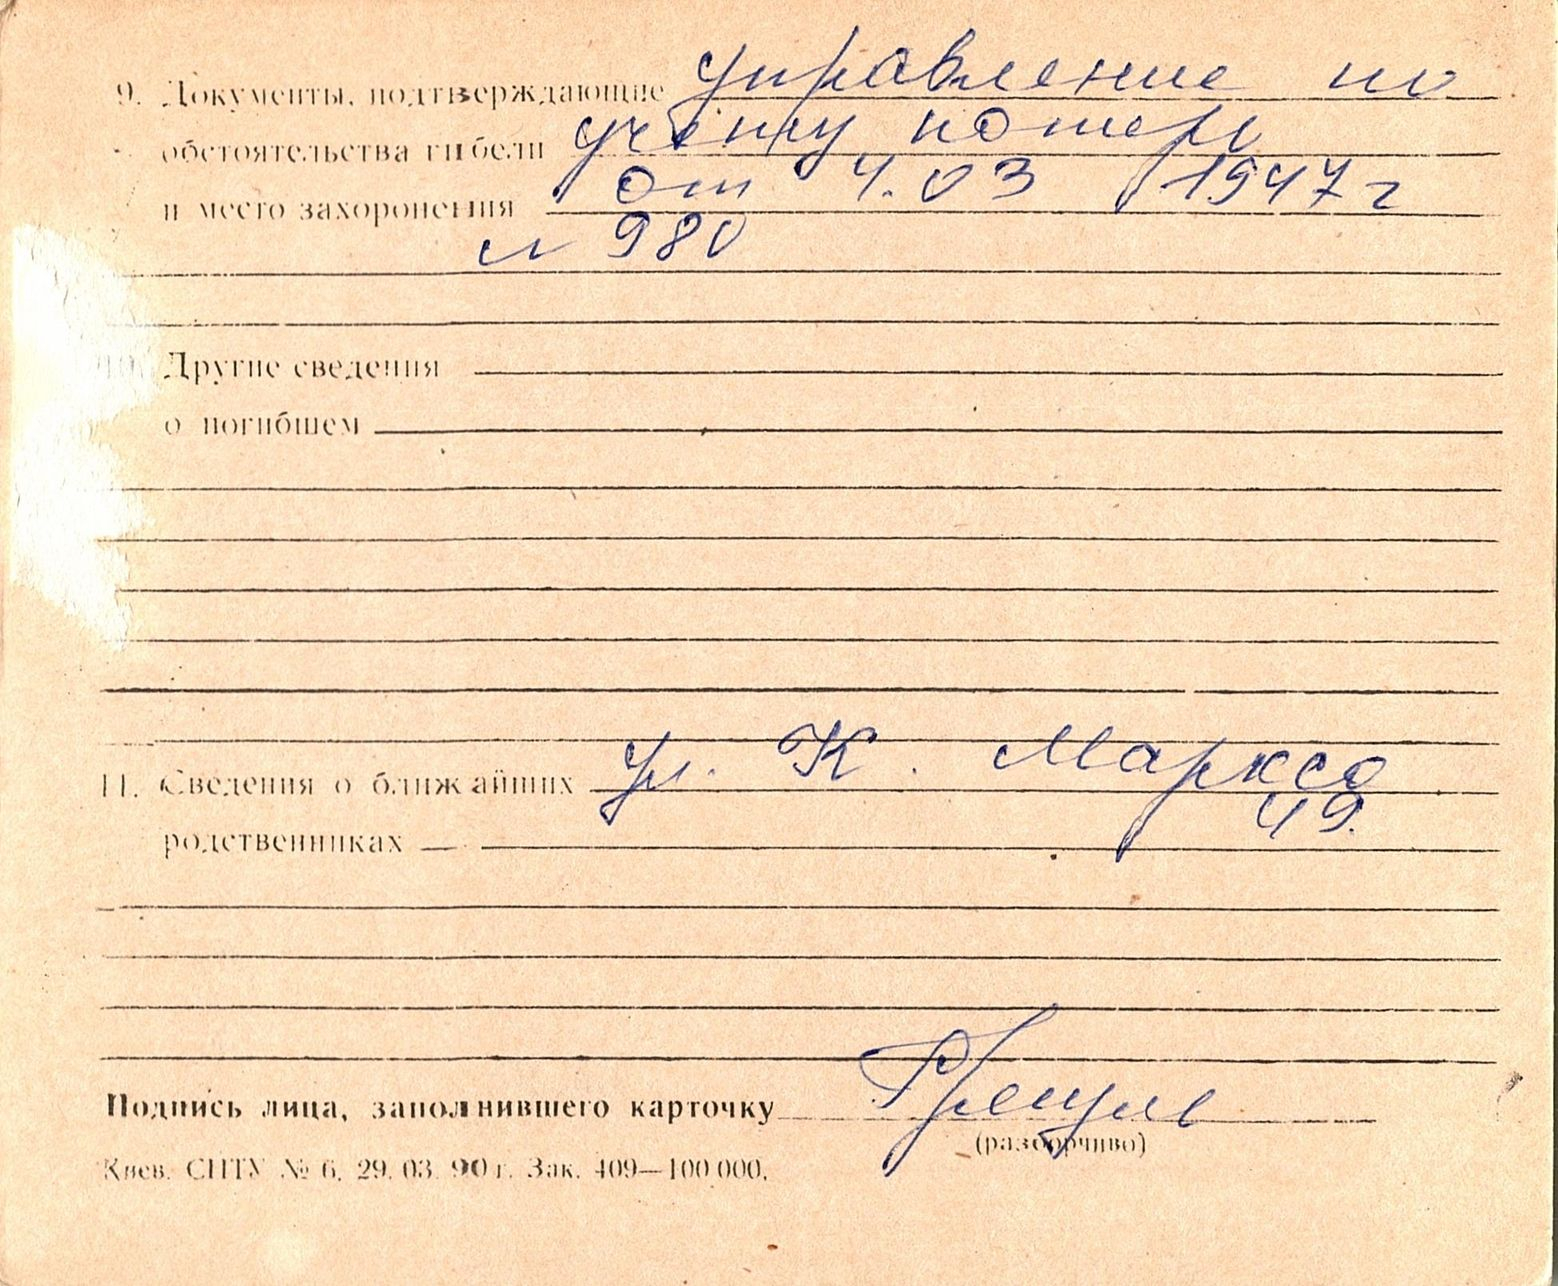 9. Документы, подтверждающие управление по
обстоятельства гибели учету потерь
и место захоронения от 4.03 1947 г
№ 980
10. Другие сведения
о погибшем
11. Сведения о ближайших ул. К. Маркса
родственниках 49.
Подпись лица, заполнившего карточку
(разборчиво)
Киев. СПТУ № 6. 29. 03. 90 г. Зак. 409—100 000.